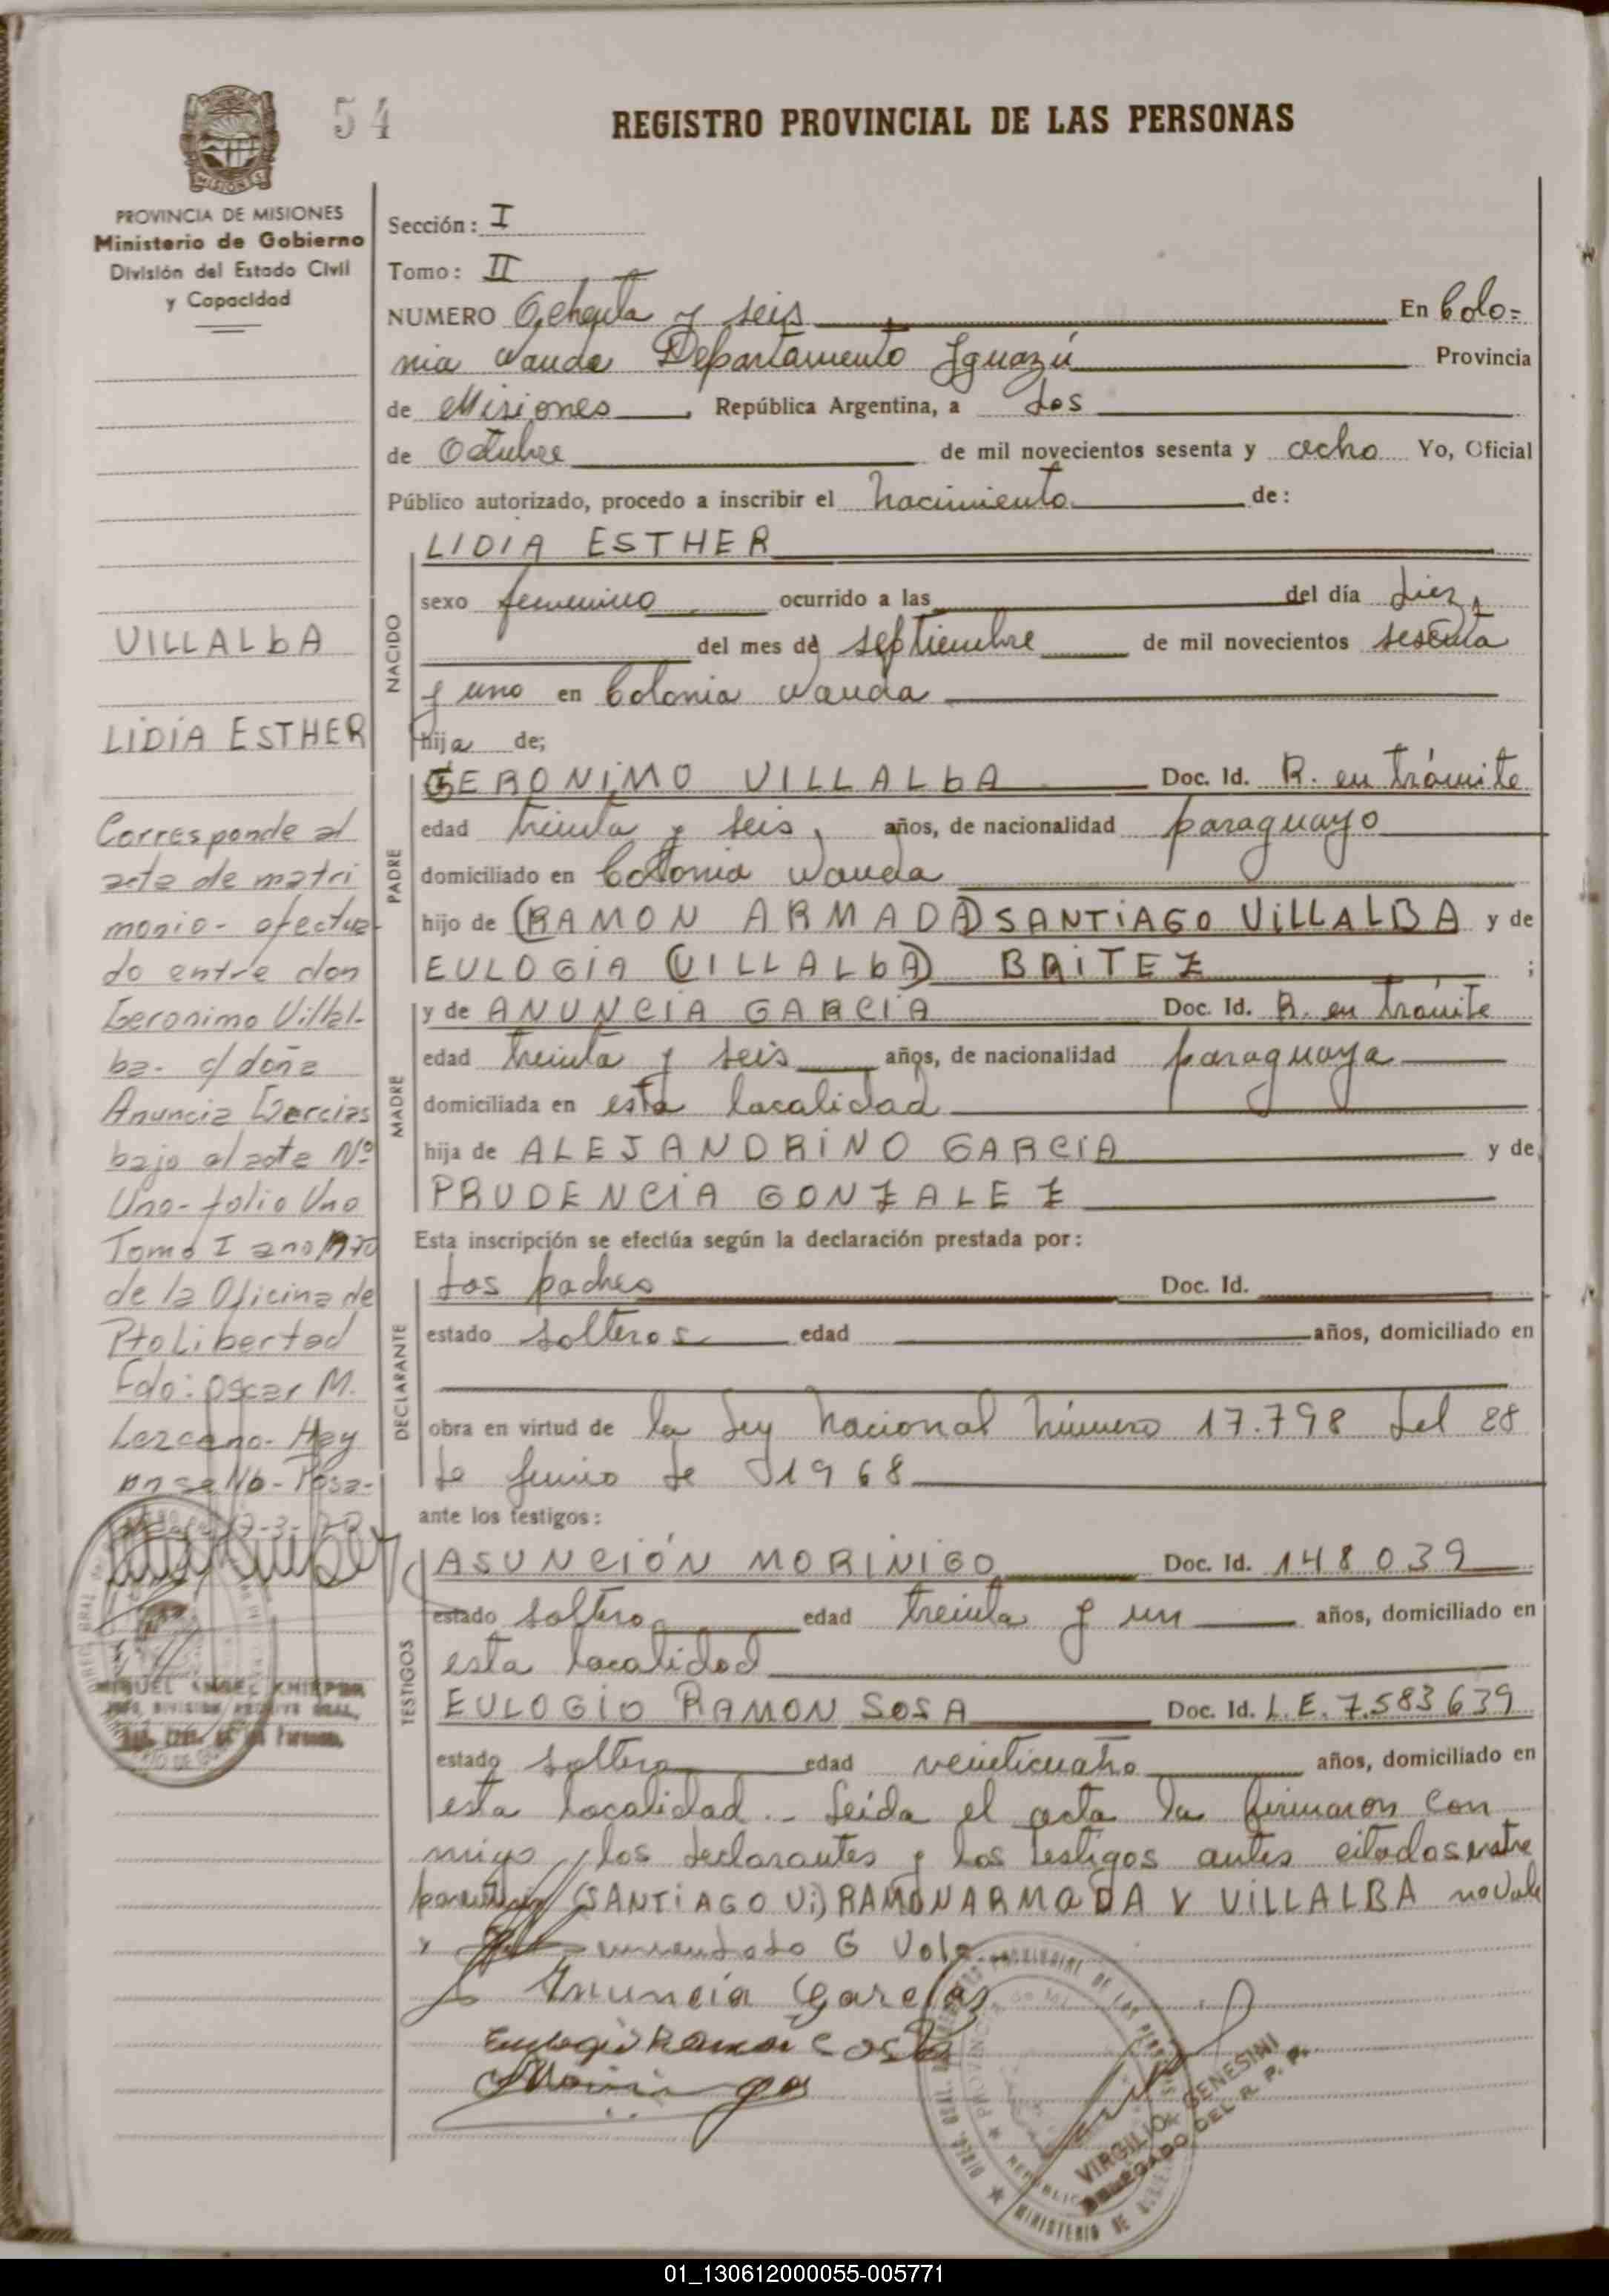 54
REGISTRO PROVINCIAL DE LAS PERSONAS
MISIONES
PROVINCIA DE MISIONES
Ministerio de Gobierno
División del Estado Civil
y Capacidad
VILLALbA
LIDIA ESTHER
Corresponde al
acta de matri
monio- efectua
do entre don
Geronimo Villal-
ba- c/ doña
Anuncia Garcias
bajo el acta Nº
Uno- folio Uno
Tomo I año 1970
de la Oficina de
Pto Libertad
Fdo: Oscar M.
Lezcano- Hay
un sello- Posa-
MIGUEL ANGEL KNIEPER
Sección: I
Tomo: II
NUMERO Ochenta y seis En Colo=
nia Wanda Departamento Iguazú Provincia
de Misiones, República Argentina, a dos
de Octubre de mil novecientos sesenta y ocho Yo, Oficial
Público autorizado, procedo a inscribir el nacimiento de:
NACIDO
LIDIA ESTHER
sexo femenino ocurrido a las del día diez
del mes de septiembre de mil novecientos sesenta
y uno en Colonia Wanda
hija de;
PADRE
GERONIMO VILLALbA Doc. Id. R. en trámite
edad treinta y seis, años, de nacionalidad paraguayo
domiciliado en Colonia Wanda
hijo de (RAMON ARMADA) SANTIAGO VILLALBA y de
EULOGIA (VILLALbA) BRITEZ ;
MADRE
y de ANUNCIA GARCIA Doc. Id. R. en trámite
edad treinta y seis años, de nacionalidad paraguaya
domiciliada en esta localidad
hija de ALEJANDRINO GARCIA y de
PRUDENCIA GONZALEZ
Esta inscripción se efectúa según la declaración prestada por:
DECLARANTE
Los padres Doc. Id.
estado solteros edad años, domiciliado en
obra en virtud de la Ley Nacional número 17.798 del 28
de Junio de 1968
ante los testigos:
TESTIGOS
ASUNCIÓN MORINIGO Doc. Id. 148.039
estado soltero edad treinta y un años, domiciliado en
esta localidad
EULOGIO RAMON SOSA Doc. Id. L.E. 7.583.639
estado soltero edad veinticuatro años, domiciliado en
esta localidad.- Leída el acta la firmaron con
migo, los declarantes y los testigos antes citados entre
parentesis (SANTIAGO Vi) RAMON ARMADA Y VILLALBA no vale
enmendado G Vale
Anuncia Garcias
Eulogio Ramon Sosa
VIRGILIO GENESINI
DELEGADO DEL R. P. P.
01_130612000055-005771